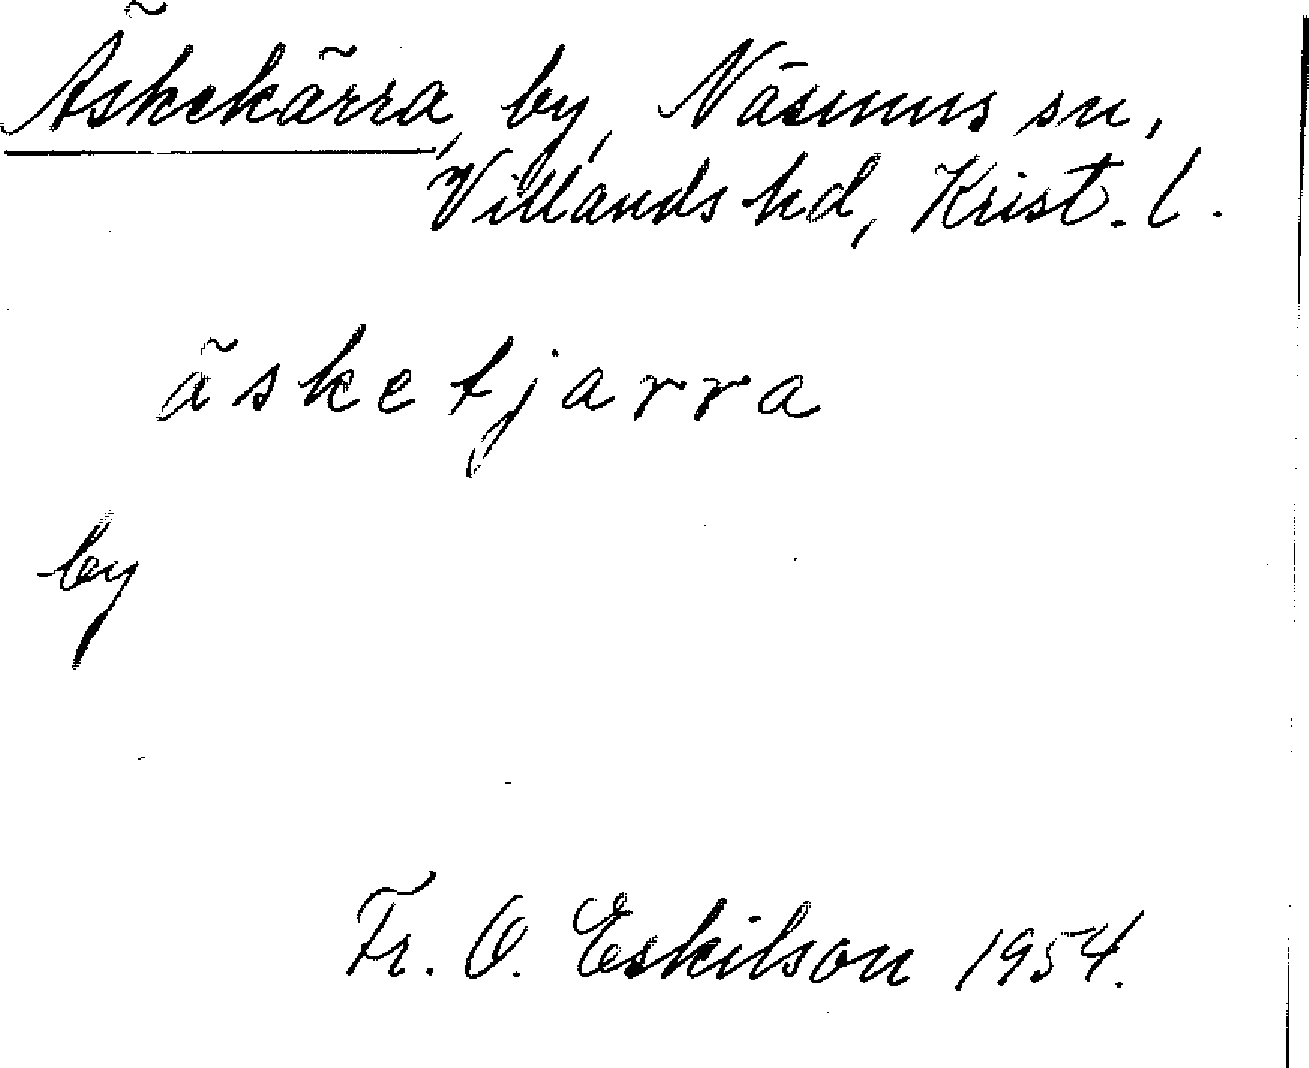 Äskekärra, by, Näsums sn,
Villands hd, Krist. l.
äsketjarra
by
Fr. O. Eskilson 1954.